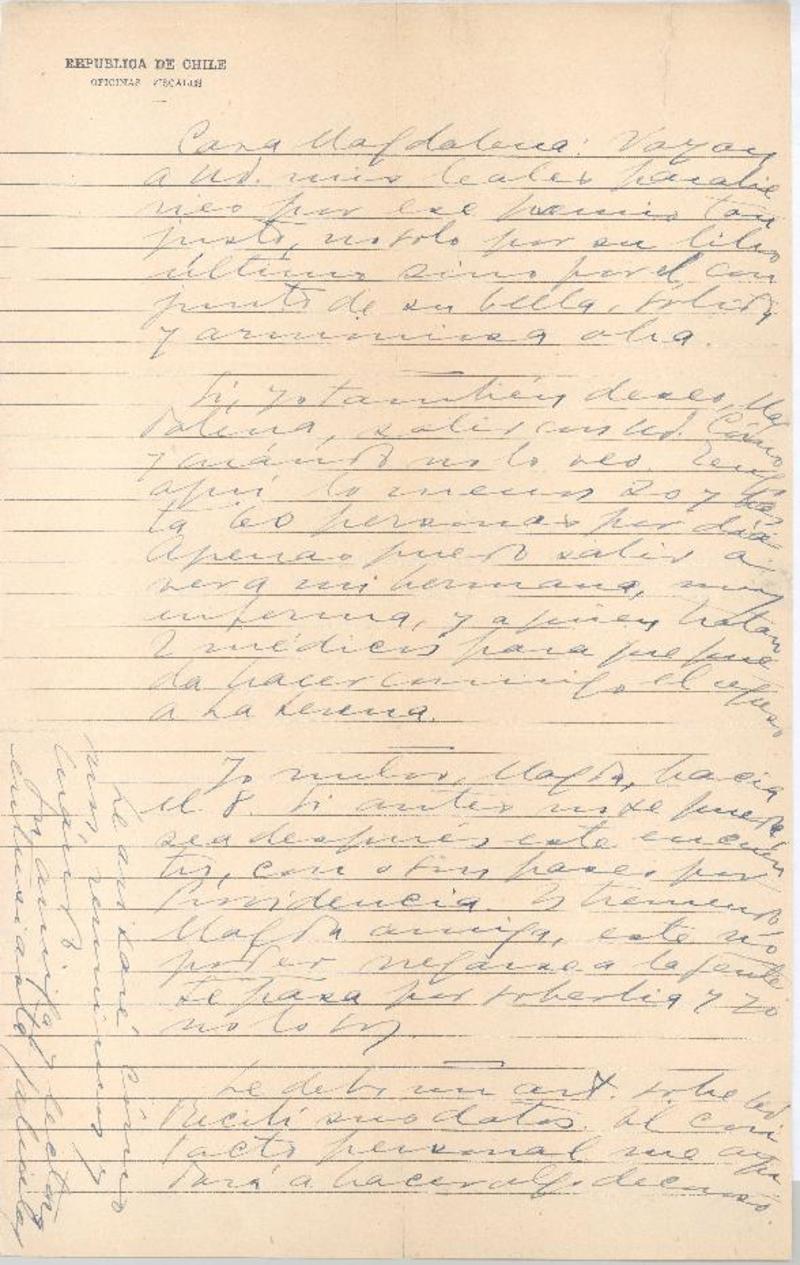 REPUBLICA DE CHILE
OFICINAS FISCALES
Cara Magdalena: Vayan
a Ud. mis leales parabie
nes por ese premio tan
justo, no solo por su libro
último sino por el con
junto de su bella, sólida
y armoniosa obra.
Sí, yo también deseo, Mag
dalena, salir con Ud. Cómo
y cuándo no lo veo. Tengo
aquí lo menos 20 y has
ta 60 personas por día
Apenas puedo salir a
ver a mi hermana, muy
enferma, y a quien tratan
2 médicos para que pue
da hacer conmigo el
a La Serena.
Yo vuelvo, Magda, hacia
el 8. Si antes no se puede
sea después este encuen
tro, con otros pases por
Providencia. Es tremendo
Magda amiga, este no
poder negarse a la gente
se pasa por soberbia y yo
no lo soy
Le debo un art. sobre Ud
Recibí sus datos. El con
tacto personal me ayu
dará a hacer algo
Le avisaré cómo
nos reunimos y
cuándo
Su amiga y lectora
entusiasta Gabriela